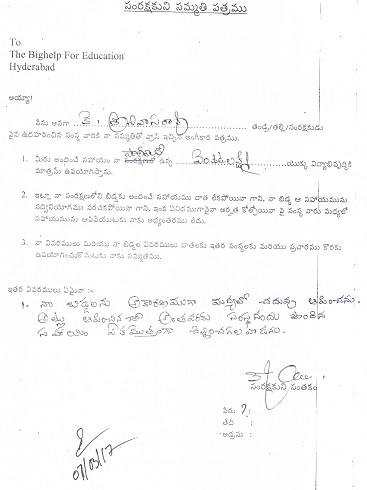 సంరక్షకుని సమ్మతి పత్రము
To
The Bighelp For Education
Hyderabad
అయ్యా!
నేను అనగా కె. శ్రీనివాసరావు తండ్రి/తల్లి/సంరక్షకుడు
పైన ఉదహరించిన సంస్థ వారికి నా సమ్మతితో వ్రాసి ఇచ్చిన అంగీకార పత్రము.
1. మీరు అందించే సహాయం నా సంరక్షణలో ఉన్న వెంకటలక్ష్మి యొక్క విద్యాభివృద్ధికి
మాత్రమే ఉపయోగిస్తాము.
2. ఇట్లా నా సంరక్షణలోని బిడ్డకు అందించే సహాయము దాత లేకపోయినా గాని, నా బిడ్డ ఆ సహాయమును
సద్వినియోగము పరచకపోయినా గాని, ఇంక ఏవిధముగానైనా అర్హత కోల్పోయినా పై సంస్థ వారు మధ్యలో
సహాయమును ఆపివేయుటకు నాకు అభ్యంతరము లేదు.
3. నా వివరములు మరియు నా బిడ్డల వివరములు దాతలకు ఇతర సంస్థలకు మరియు ప్రచారము కొరకు
ఉపయోగించుకొనుటకు నాకు సమ్మతము.
ఇతర వివరములు ఏమైనా :-
1. నా బిడ్డలను అకారణముగా మధ్యలో చదువు ఆపించను.
అట్లు ఆపించిన సంస్థనుండి పొందిన
సహాయం
సంరక్షకుని సంతకం
పేరు :
తేదీ :
అడ్రసు :
07/03/17